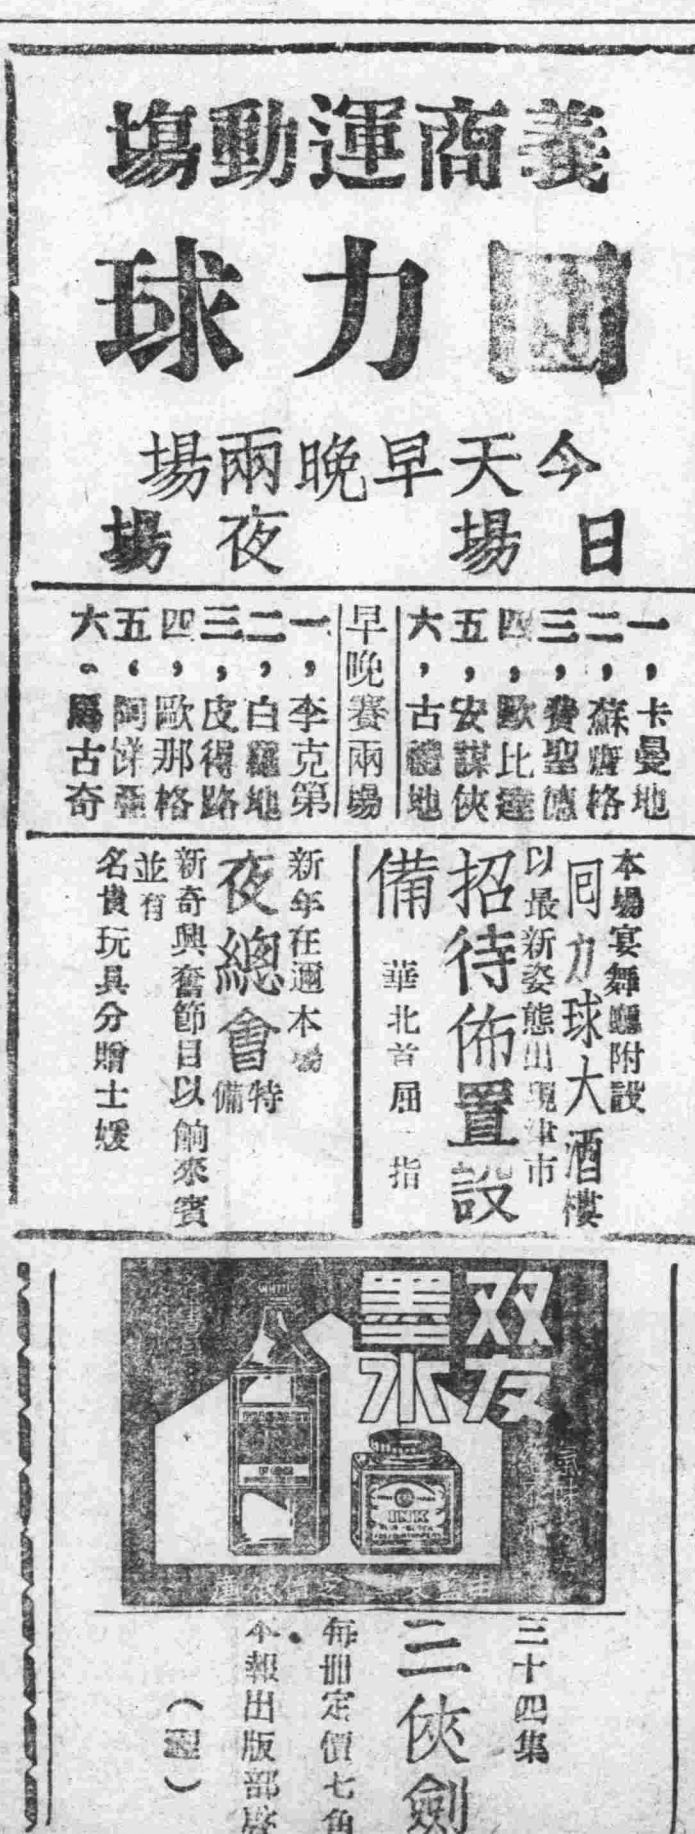 義商運動塲
回力球
今天早晚兩場
日場 夜場
一，卡曼地
二，蘇爾格
三，費聖德
四，歐比達
五，安謀俠
六，古禮地
早晚賽兩場
一，李克第
二，白羅地
三，皮得路
四，歐那格
五，阿洋亞
六。馬古奇
本場宴舞廳附設
回力球大酒樓
以最新姿態出現津市
招待佈置設備
華北首屈一指
新年在邇本場
夜總會
特備
新奇興奮節目以餉來賓
並有
名貴玩具分贈士媛
双友
墨水
INK
BLUE-BLACK
三十四集
三俠劍
每冊定價七角
本報出版部啓